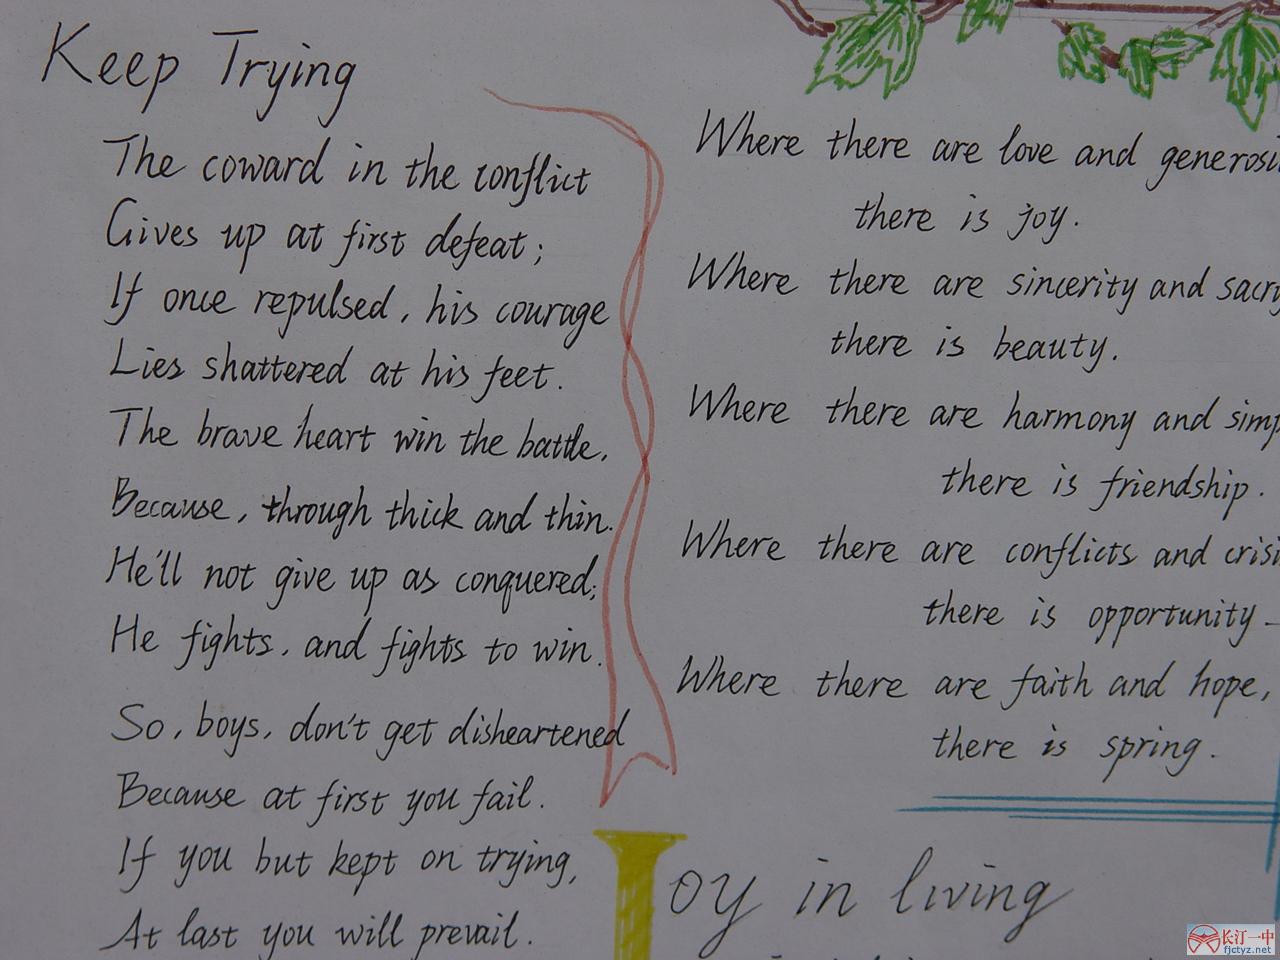 Keep Trying
The coward in the conflict
Gives up at first defeat;
If once repulsed, his courage
Lies shattered at his feet.
The brave heart win the battle,
Because, through thick and thin.
He'll not give up as conquered;
He fights, and fights to win.
So, boys, don't get disheartened
Because at first you fail.
If you but kept on trying,
At last you will prevail.
Where there are love and generosi
there is joy.
Where there are sincerity and sacri
there is beauty.
Where there are harmony and simp
there is friendship.
Where there are conflicts and crisi
there is opportunity
Where there are faith and hope,
there is spring.
Joy in living
长汀一中
fjctyz.net